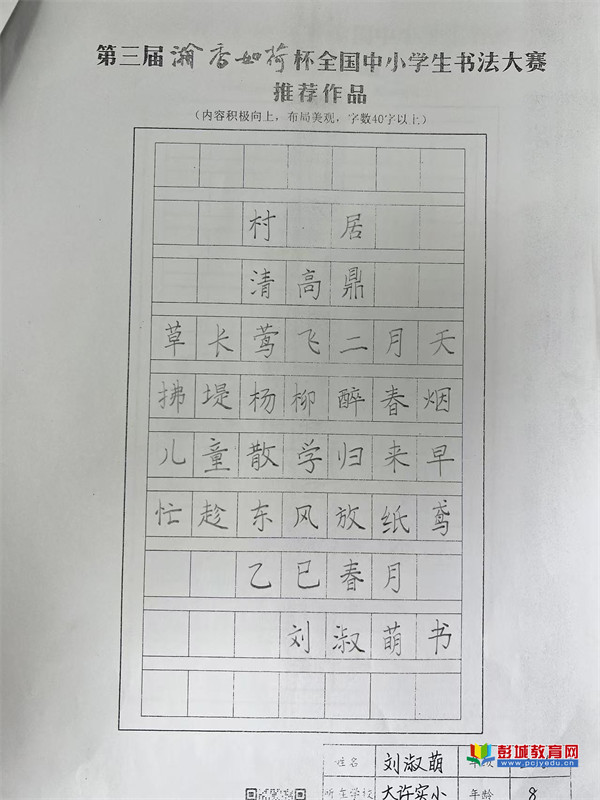 第三届瀚香如荷杯全国中小学生书法大赛
推荐作品
（内容积极向上，布局美观，字数40字以上）
村居
清高鼎
草长莺飞二月天
拂堤杨柳醉春烟
儿童散学归来早
忙趁东风放纸鸢
乙巳春月
刘淑萌书
姓名 刘淑萌
所在学校 大许实小 年龄 8
彭城教育网
www.pcjyedu.cn